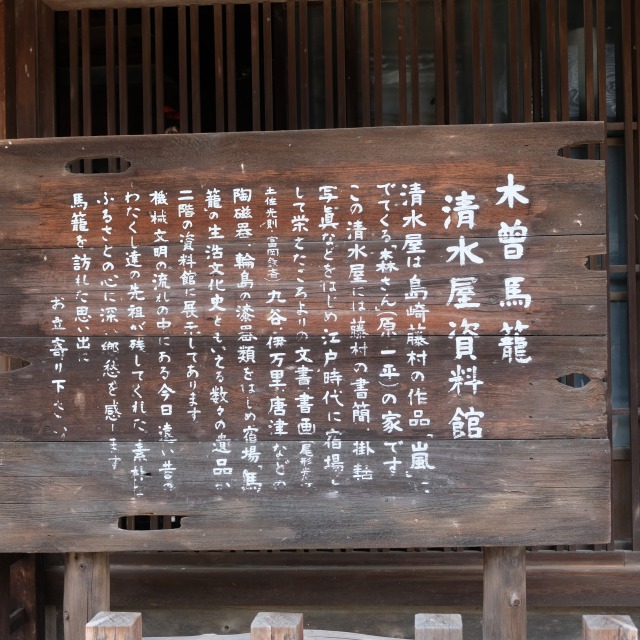 木曽馬籠
清水屋資料館
清水屋は島崎藤村の作品「嵐」に
でてくる「森さん」(原 一平)の家です
この清水屋には藤村の書簡、掛軸
写真などをはじめ 江戸時代に宿場と
して栄えたころよりの文書 書画
九谷 伊万里 唐津などの
陶磁器、輪島の漆器類をはじめ宿場、馬
籠の生活文化史ともいえる数々の遺品が
二階の資料館に展示してあります
機械文明の流れの中にある今日 遠い昔の
わたくし達の先祖が残してくれた、素朴な
ふるさとの心に深い郷愁を感じます
馬籠を訪れた思い出に
お立寄り下さい